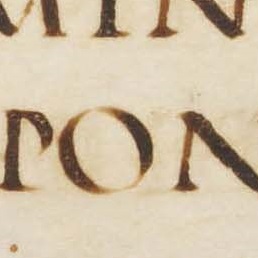 MIN
PON